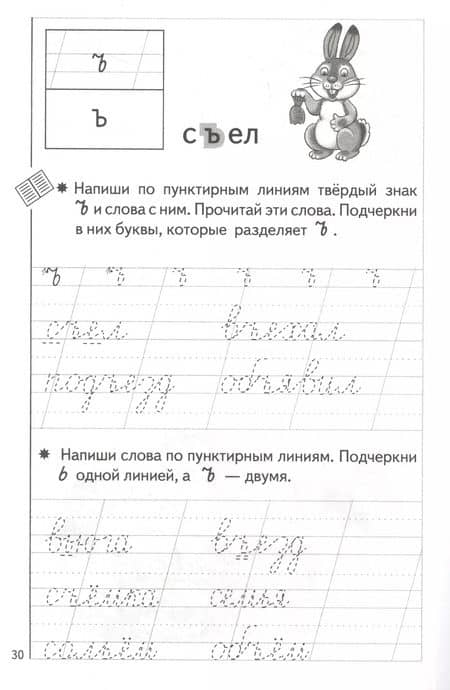 ъ
Ъ
съел
Напиши по пунктирным линиям твёрдый знак
ъ и слова с ним. Прочитай эти слова. Подчеркни
в них буквы, которые разделяет ъ .
ъ ъ ъ ъ ъ ъ
съел въехал
подъезд объявил
Напиши слова по пунктирным линиям. Подчеркни
ь одной линией, а ъ — двумя.
вьюга въезд
съёмка семья
сальём объём
30